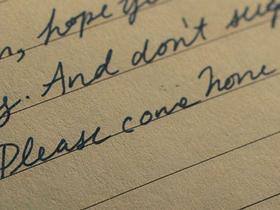 , hope
. And don't
Please come home